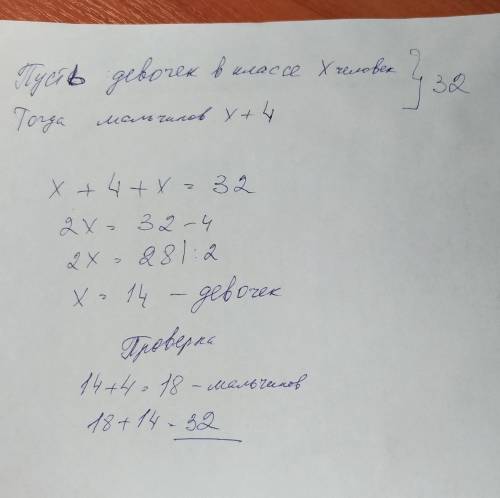 Пусть девочек в классе x человек } 32
Тогда мальчиков x + 4
x + 4 + x = 32
2x = 32 - 4
2x = 28 | : 2
x = 14 - девочек
Проверка
14 + 4 = 18 - мальчиков
18 + 14 = 32